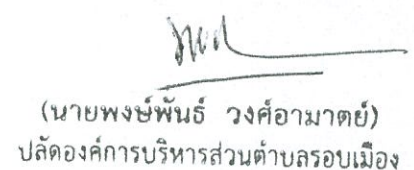 (นายพงษ์พันธ์ วงศ์อามาตย์)
ปลัดองค์การบริหารส่วนตำบลรอบเมือง